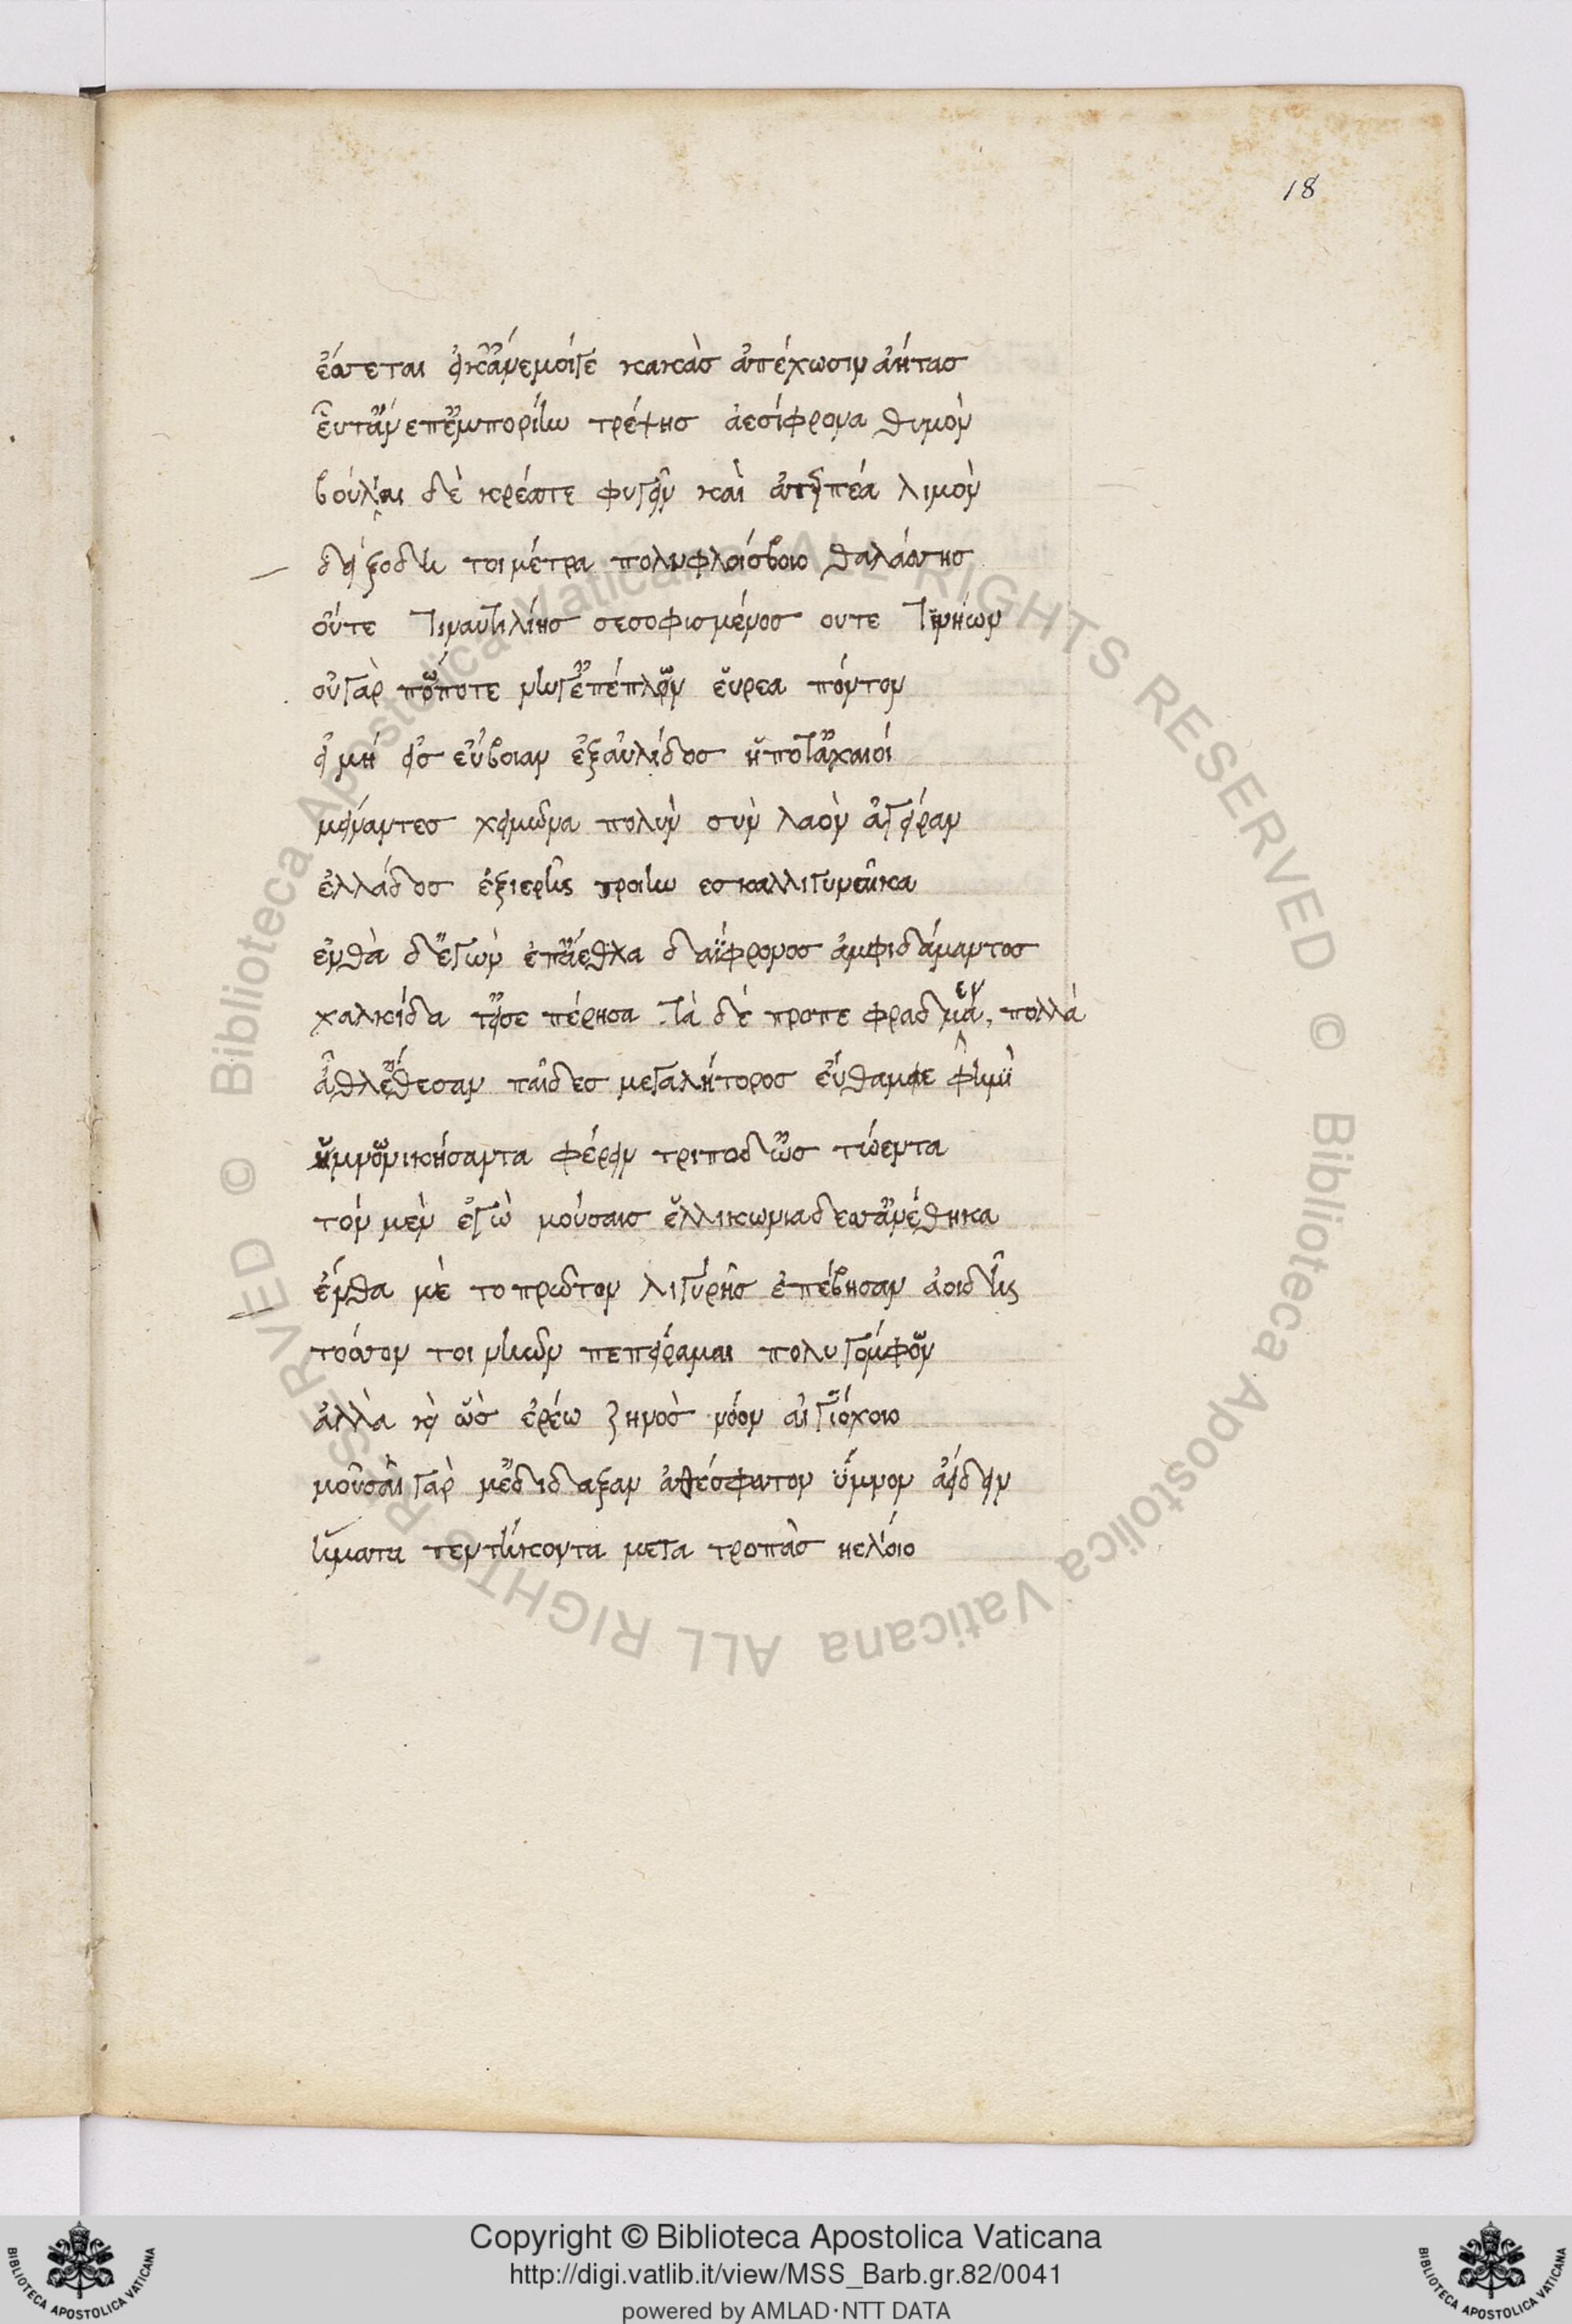 18
ἔσσεται εἴκ' ἄνεμοίγε κακὰσ ἀπέχωσιν ἀήτασ
Εὖτ' ἂν επ' ἐμπορίην τρέψησ ἀεσίφρονα θυμὸν
βούληαι δὲ κρέατε φυγεῖν καὶ ἀτερπέα λιμὸν
δείξοδή τοι μέτρα πολυφλοίσβοιο θαλάσσησ
οὔτε τιναυτιλίησ σεσοφισμένοσ ουτε τινηῶν
οὐγὰρ πώποτε νηῒγ' ἐπέπλων ἔυρεα πόντον
εἰ μή εἰσ εὔβοιαν ἐξαὐλίδοσ ἥποτ' ἀχαιοί
μείναντεσ χειμῶνα πολὺν σὺν λαὸν ἄγειραν
ἑλλάδοσ ἐξιερῆς τροίην εσκαλλιγυναῖκα
ἐνθὰ δ' ἐγὼν ἐπ' ἄεθλα δαΐφρονοσ ἀμφιδάμαντοσ
χαλκίδα τ' εἰσε πέρησα . τὰ δὲ προπε φραδμενά, πολλά
ἆθλ' ἔθεσαν παῖδεσ μεγαλήτοροσ ἔνθαμε φημὶ
ὕμνωνικήσαντα φέρειν τριποδ' ὦσ τώεντα
τόν μεν ἐγὼ μούσαισ ἑλλικωνιαδεσσ' ἀνέθηκα
ἔνθα μὲ τοπρῶτον λιγύρῆσ ἐπέβησαν ἀοιδῆς
τόσσον τοι νηῶν πεπείραμαι πολυγόμφων
ἀλλὰ καὶ ὧσ ἐρέω ζηνοσ νόον αἰγιόχοιο
μοῦσαι γὰρ μ' ἐδιδαξαν ἀθέσφατον ὕμνον ἀείδειν
ἤματα πεντήκοντα μετα τροπὰσ ηελίοιο
© Biblioteca Apostolica Vaticana ALL RIGHTS RESERVED © Biblioteca Apostolica Vaticana ALL RIGHTS RESERVED
BIBLIOTECA APOSTOLICA VATICANA
Copyright © Biblioteca Apostolica Vaticana
http://digi.vatlib.it/view/MSS_Barb.gr.82/0041
powered by AMLAD·NTT DATA
BIBLIOTECA APOSTOLICA VATICANA